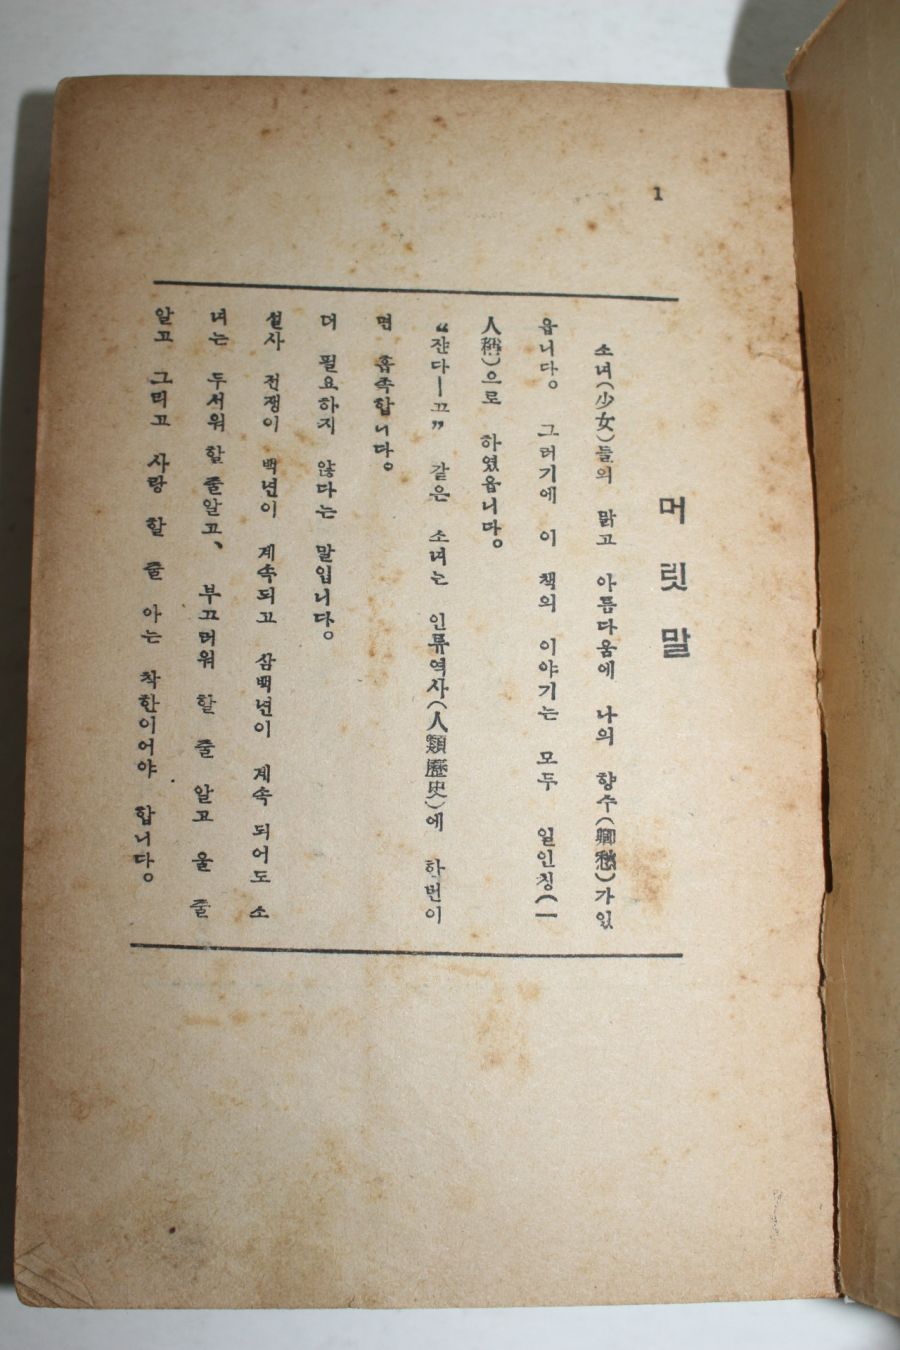 1
머릿말
소녀(少女)들의 맑고 아름다움에 나의 향수(鄕愁)가 있
읍니다。 그러기에 이 책의 이야기는 모두 일인칭(一
人稱)으로 하였읍니다。
“쟌다—끄” 같은 소녀는 인류역사(人類歷史)에 한번이
면 흡족합니다。
더 필요하지 않다는 말입니다。
설사 전쟁이 백년이 계속되고 삼백년이 계속 되어도 소
녀는 두서워 할 줄알고、 부끄러워 할 줄 알고 울 줄
알고 그리고 사랑 할 줄 아는 착한이어야 합니다。